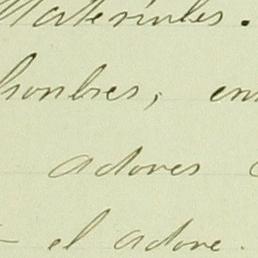 Materiales.
hombres, en
adores
el adore.